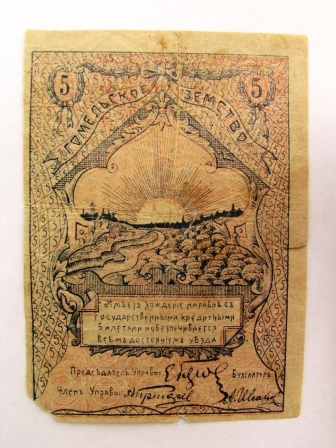 5 5
ГОМЕЛЬСКОЕ ЗЕМСТВО
ИМѢЕТЪ ХОЖДЕНІЕ НАРАВНѢ СЪ
ГОСУДАРСТВЕННЫМИ КРЕДИТНЫМИ
БИЛЕТАМИ И ОБЕЗПЕЧИВАЕТСЯ
ВСѢМЪ ДОСТОЯНІЕМЪ УѢЗДА
Предсѣдатель Управы Бухгалтеръ
Членъ Управы